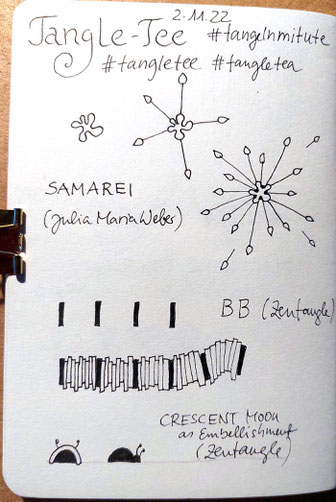 2.11.22
Tangle-Tee #tangelnmitute
#tangletee #tangletea
SAMAREI
(Julia Maria Weber)
BB (Zentangle)
CRESCENT MOON
as Embellishment
(Zentangle)